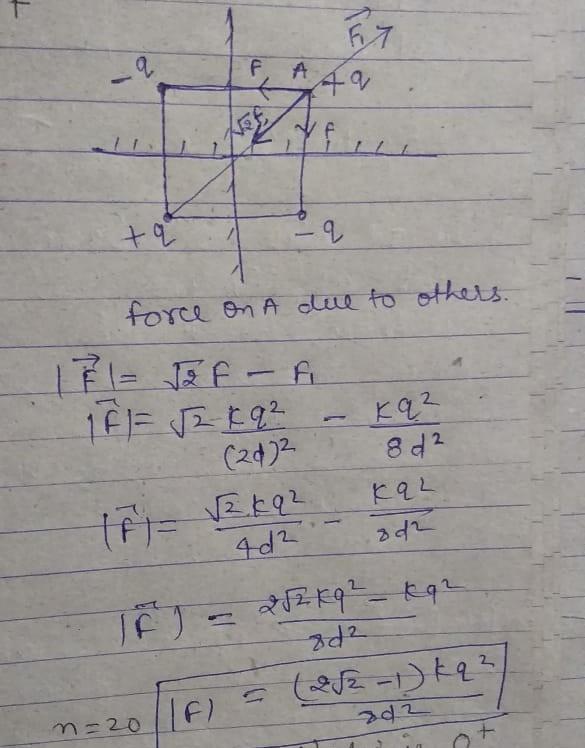 F⃗₁
-q F A +q
√2F F
+q -q
force on A due to others.
|F⃗| = √2 F - F₁
|F⃗| = √2 Kq²/(2d)² - Kq²/8d²
|F⃗| = √2 Kq²/4d² - Kq²/8d²
|F⃗| = 2√2 Kq² - Kq²/8d²
n=20 |F| = (2√2 - 1) Kq²/8d²